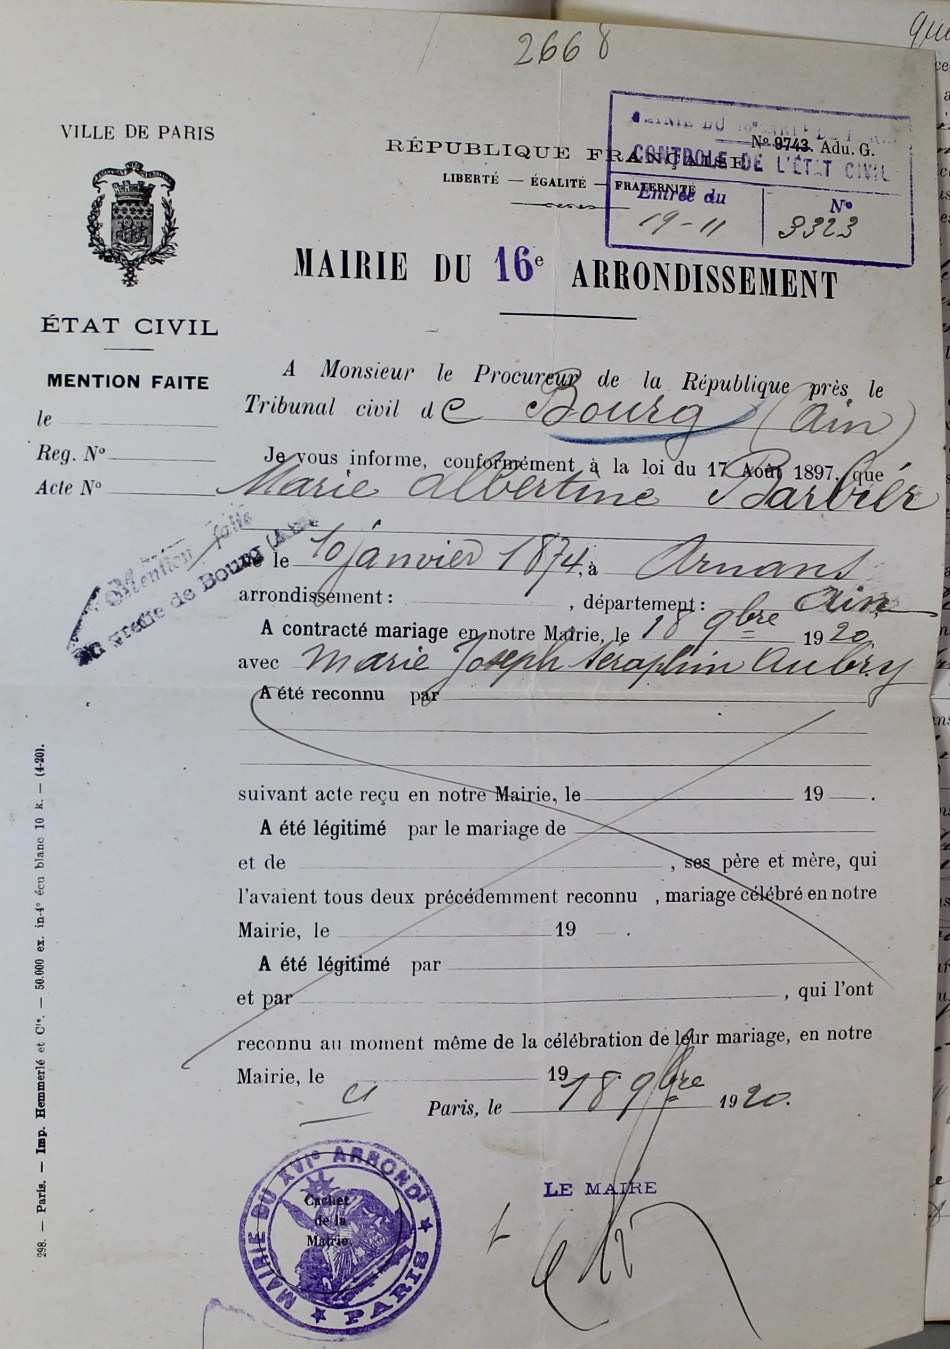 2668
VILLE DE PARIS
RÉPUBLIQUE FRANÇAISE
LIBERTÉ — ÉGALITÉ — FRATERNITÉ
Nº 9743. Adu. G.
MAIRIE DU
CONTROLE DE L'ÉTAT CIVIL
Entrée du Nº
19-11 3323
MAIRIE DU 16e ARRONDISSEMENT
ÉTAT CIVIL
MENTION FAITE
le
Reg. Nº
Acte Nº
A Monsieur le Procureur de la République près le
Tribunal civil de Bourg (Ain)
Je vous informe, conformément à la loi du 17 Août 1897, que
Marie Albertine Barbier
né le 10 janvier 1874, à Arnans
arrondissement : , département : Ain
A contracté mariage en notre Mairie, le 18 9bre 1920
avec Marie Joseph Séraphin Aubry
A été reconnu par
suivant acte reçu en notre Mairie, le 19 .
A été légitimé par le mariage de
et de , ses père et mère, qui
l'avaient tous deux précédemment reconnu , mariage célébré en notre
Mairie, le 19 .
A été légitimé par
et par , qui l'ont
reconnu au moment même de la célébration de leur mariage, en notre
Mairie, le 19 .
Paris, le 18 9bre 1920.
LE MAIRE
Mention faite
au Greffe de Bourg
MAIRIE DU XVIe ARRONDt
PARIS
Cachet
de la
Mairie
298. — Paris. — Imp. Hemmerlé et Cie. — 50.000 ex. in-4º écu blanc 10 k. — (4-20).